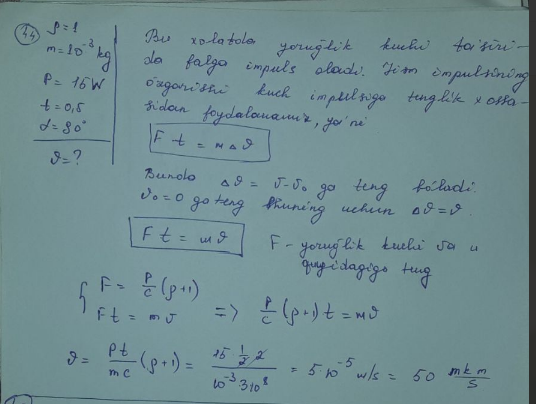 44
ρ=1
m=10⁻³ kg
P = 15W
t = 0,5
α=90°
ϑ=?
Bu xolatda yorug'lik kuchi ta'siri-
da falga impuls oladi. Jism impulsining
o'zgarishi kuch impulsiga tenglik xossa-
sidan foydalanamiz, ya'ni
F t = m Δϑ
Bunda Δϑ = ϑ-ϑ₀ ga teng bo'ladi.
ϑ₀=0 ga teng shuning uchun Δϑ=ϑ.
F t = mϑ
F - yorug'lik kuchi va u
quyidagiga teng
{ F = P/c (ρ+1)
F t = mϑ => P/c (ρ+1) t = mϑ
ϑ = Pt/mc (ρ+1) = 15 · 1/2 · 2 / 10⁻³·3·10⁸ = 5·10⁻⁵ m/s = 50 mkm/s